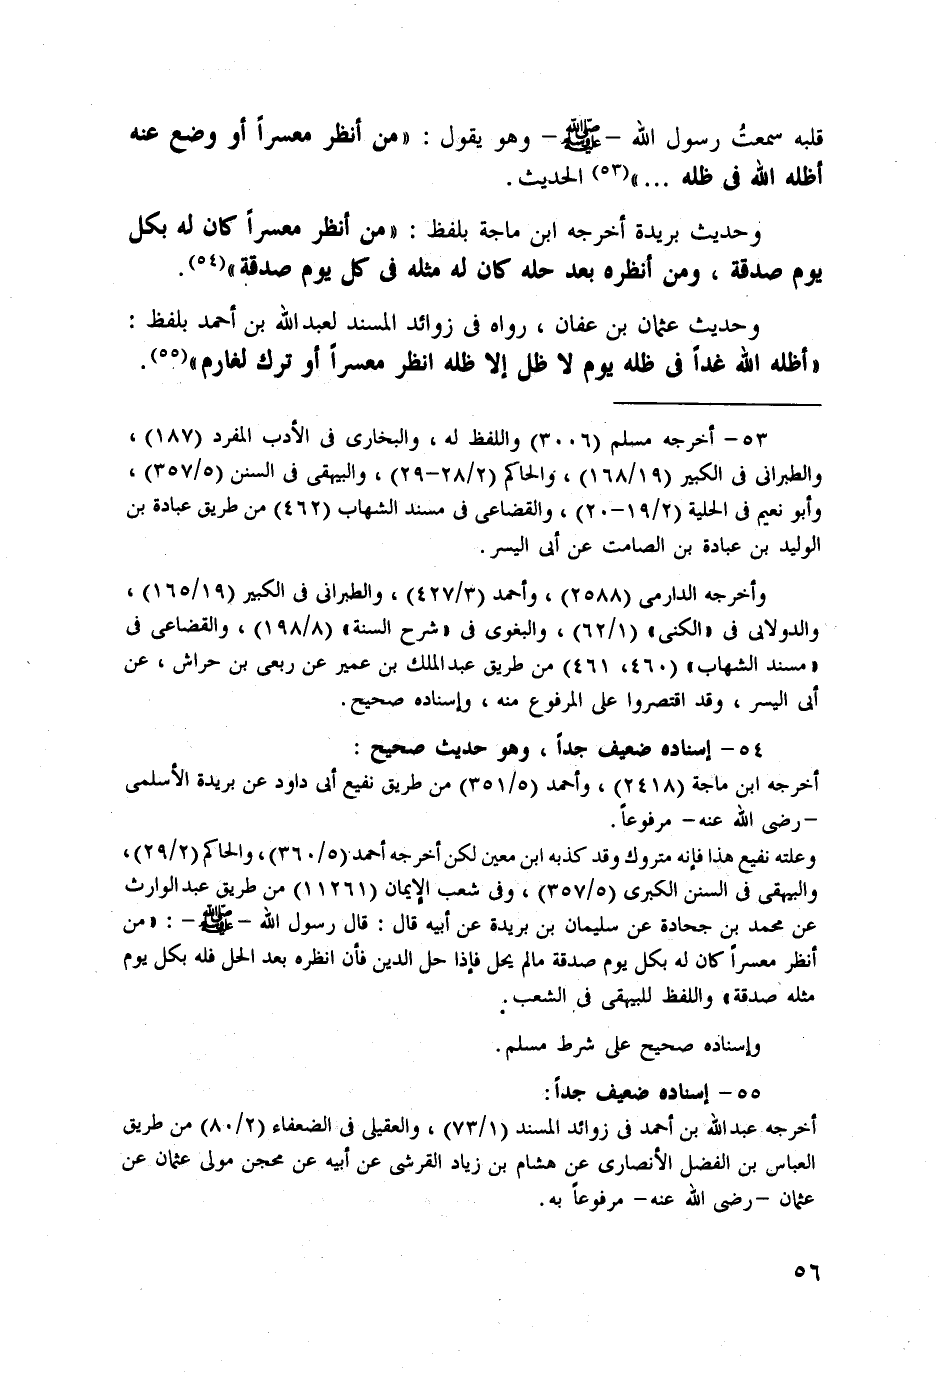 قلبه سمعتُ رسول الله -ﷺ- وهو يقول : «من أنظر معسراً أو وضع عنه
أظله الله فى ظله ...»(٥٣) الحديث .
وحديث بريدة أخرجه ابن ماجة بلفظ : «من أنظر معسراً كان له بكل
يوم صدقة ، ومن أنظره بعد حله كان له مثله فى كل يوم صدقة»(٥٤).
وحديث عثمان بن عفان ، رواه فى زوائد المسند لعبدالله بن أحمد بلفظ :
«أظله الله غداً فى ظله يوم لا ظل إلا ظله انظر معسراً أو ترك لغارم»(٥٥).
٥٣- أخرجه مسلم (٣٠٠٦) واللفظ له ، والبخارى فى الأدب المفرد (١٨٧) ،
والطبرانى فى الكبير (١٦٨/١٩) ، والحاكم (٢٨/٢-٢٩) ، والبيهقى فى السنن (٣٥٧/٥) ،
وأبو نعيم فى الحلية (١٩/٢-٢٠) ، والقضاعى فى مسند الشهاب (٤٦٢) من طريق عبادة بن
الوليد بن عبادة بن الصامت عن أبى اليسر .
وأخرجه الدارمى (٢٥٨٨) ، وأحمد (٤٢٧/٣) ، والطبرانى فى الكبير (١٦٥/١٩) ،
والدولابى فى «الكنى» (٦٢/١) ، والبغوى فى «شرح السنة» (١٩٨/٨) ، والقضاعى فى
«مسند الشهاب» (٤٦٠، ٤٦١) من طريق عبدالملك بن عمير عن ربعى بن حراش ، عن
أبى اليسر ، وقد اقتصروا على المرفوع منه ، وإسناده صحيح.
٥٤- إسناده ضعيف جداً ، وهو حديث صحيح :
أخرجه ابن ماجة (٢٤١٨) ، وأحمد (٣٥١/٥) من طريق نفيع أبى داود عن بريدة الأسلمى
-رضى الله عنه- مرفوعاً.
وعلته نفيع هذا فإنه متروك وقد كذبه ابن معين لكن أخرجه أحمد (٣٦٠/٥)، والحاكم (٢٩/٢)،
والبيهقى فى السنن الكبرى (٣٥٧/٥) ، وفى شعب الإيمان (١١٢٦١) من طريق عبدالوارث
عن محمد بن جحادة عن سليمان بن بريدة عن أبيه قال : قال رسول الله -ﷺ- : «من
أنظر معسراً كان له بكل يوم صدقة مالم يحل فإذا حل الدين فأن انظره بعد الحل فله بكل يوم
مثله صدقة» واللفظ للبيهقى فى الشعب .
وإسناده صحيح على شرط مسلم.
٥٥- إسناده ضعيف جداً:
أخرجه عبدالله بن أحمد فى زوائد المسند (٧٣/١) ، والعقيلى فى الضعفاء (٨٠/٢) من طريق
العباس بن الفضل الأنصارى عن هشام بن زياد القرشى عن أبيه عن محجن مولى عثمان عن
عثمان -رضى الله عنه- مرفوعاً به.
٥٦